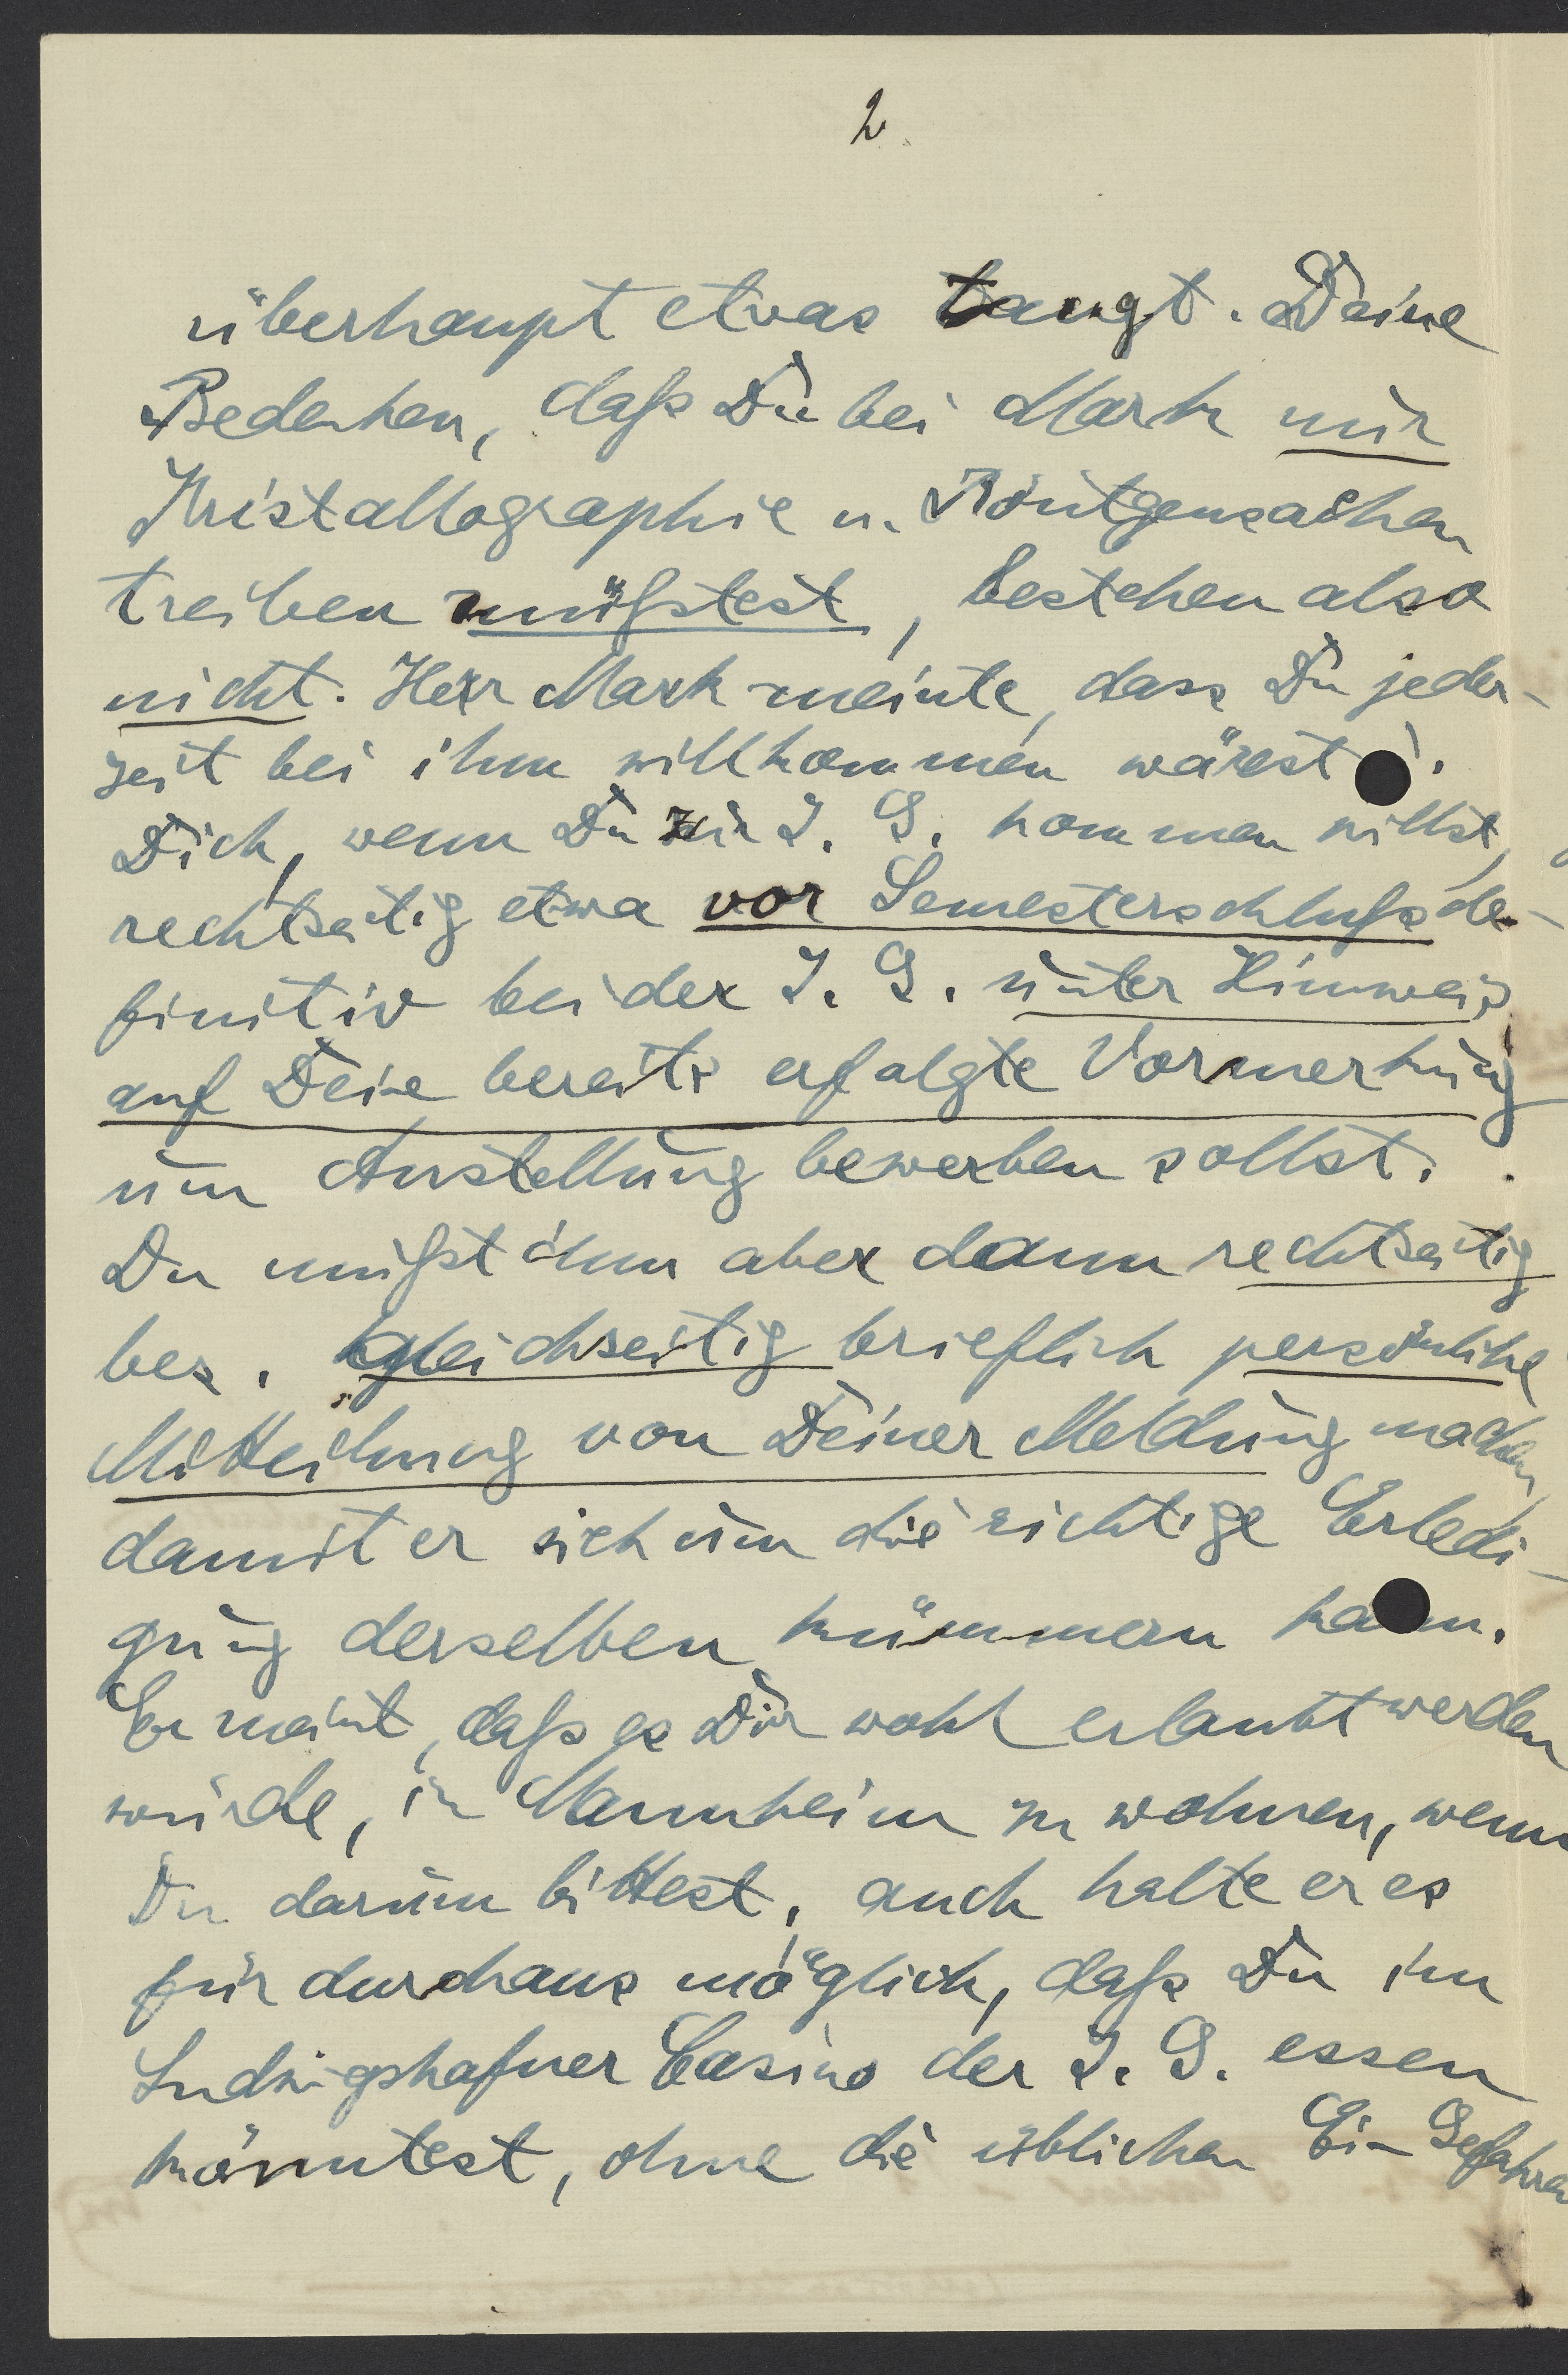 2.
überhaupt etwas taugt. Deine
Bedenken, daß Du bei Mark nur
Kristallographie u. Röntgensachen
treiben müßtest, bestehen also
nicht. Herr Mark meinte, dass Du jeder-
zeit bei ihm willkommen wärest.
Dich, wenn Du zur I. G. kommen willst,
rechtzeitig etwa vor Semesterschluß de-
finitiv bei der I. G. unter Hinweis
auf Deine bereits erfolgte Vormerkung
um Anstellung bewerben sollst.
Du müßt ihm aber dann rechtzeitig
bez. gleichzeitig brieflich persönliche
Mitteilung von Deiner Meldung machen,
damit er sich um die richtige Erledi-
gung derselben kümmern kann.
Er meint, daß es Dir wohl erlaubt werden
würde, in Mannheim zu wohnen, wenn
Du darum bittest, auch halte er es
für durchaus möglich, daß Du im
Ludwigshafner Casino der I. G. essen
könntest, ohne die üblichen Gefahren